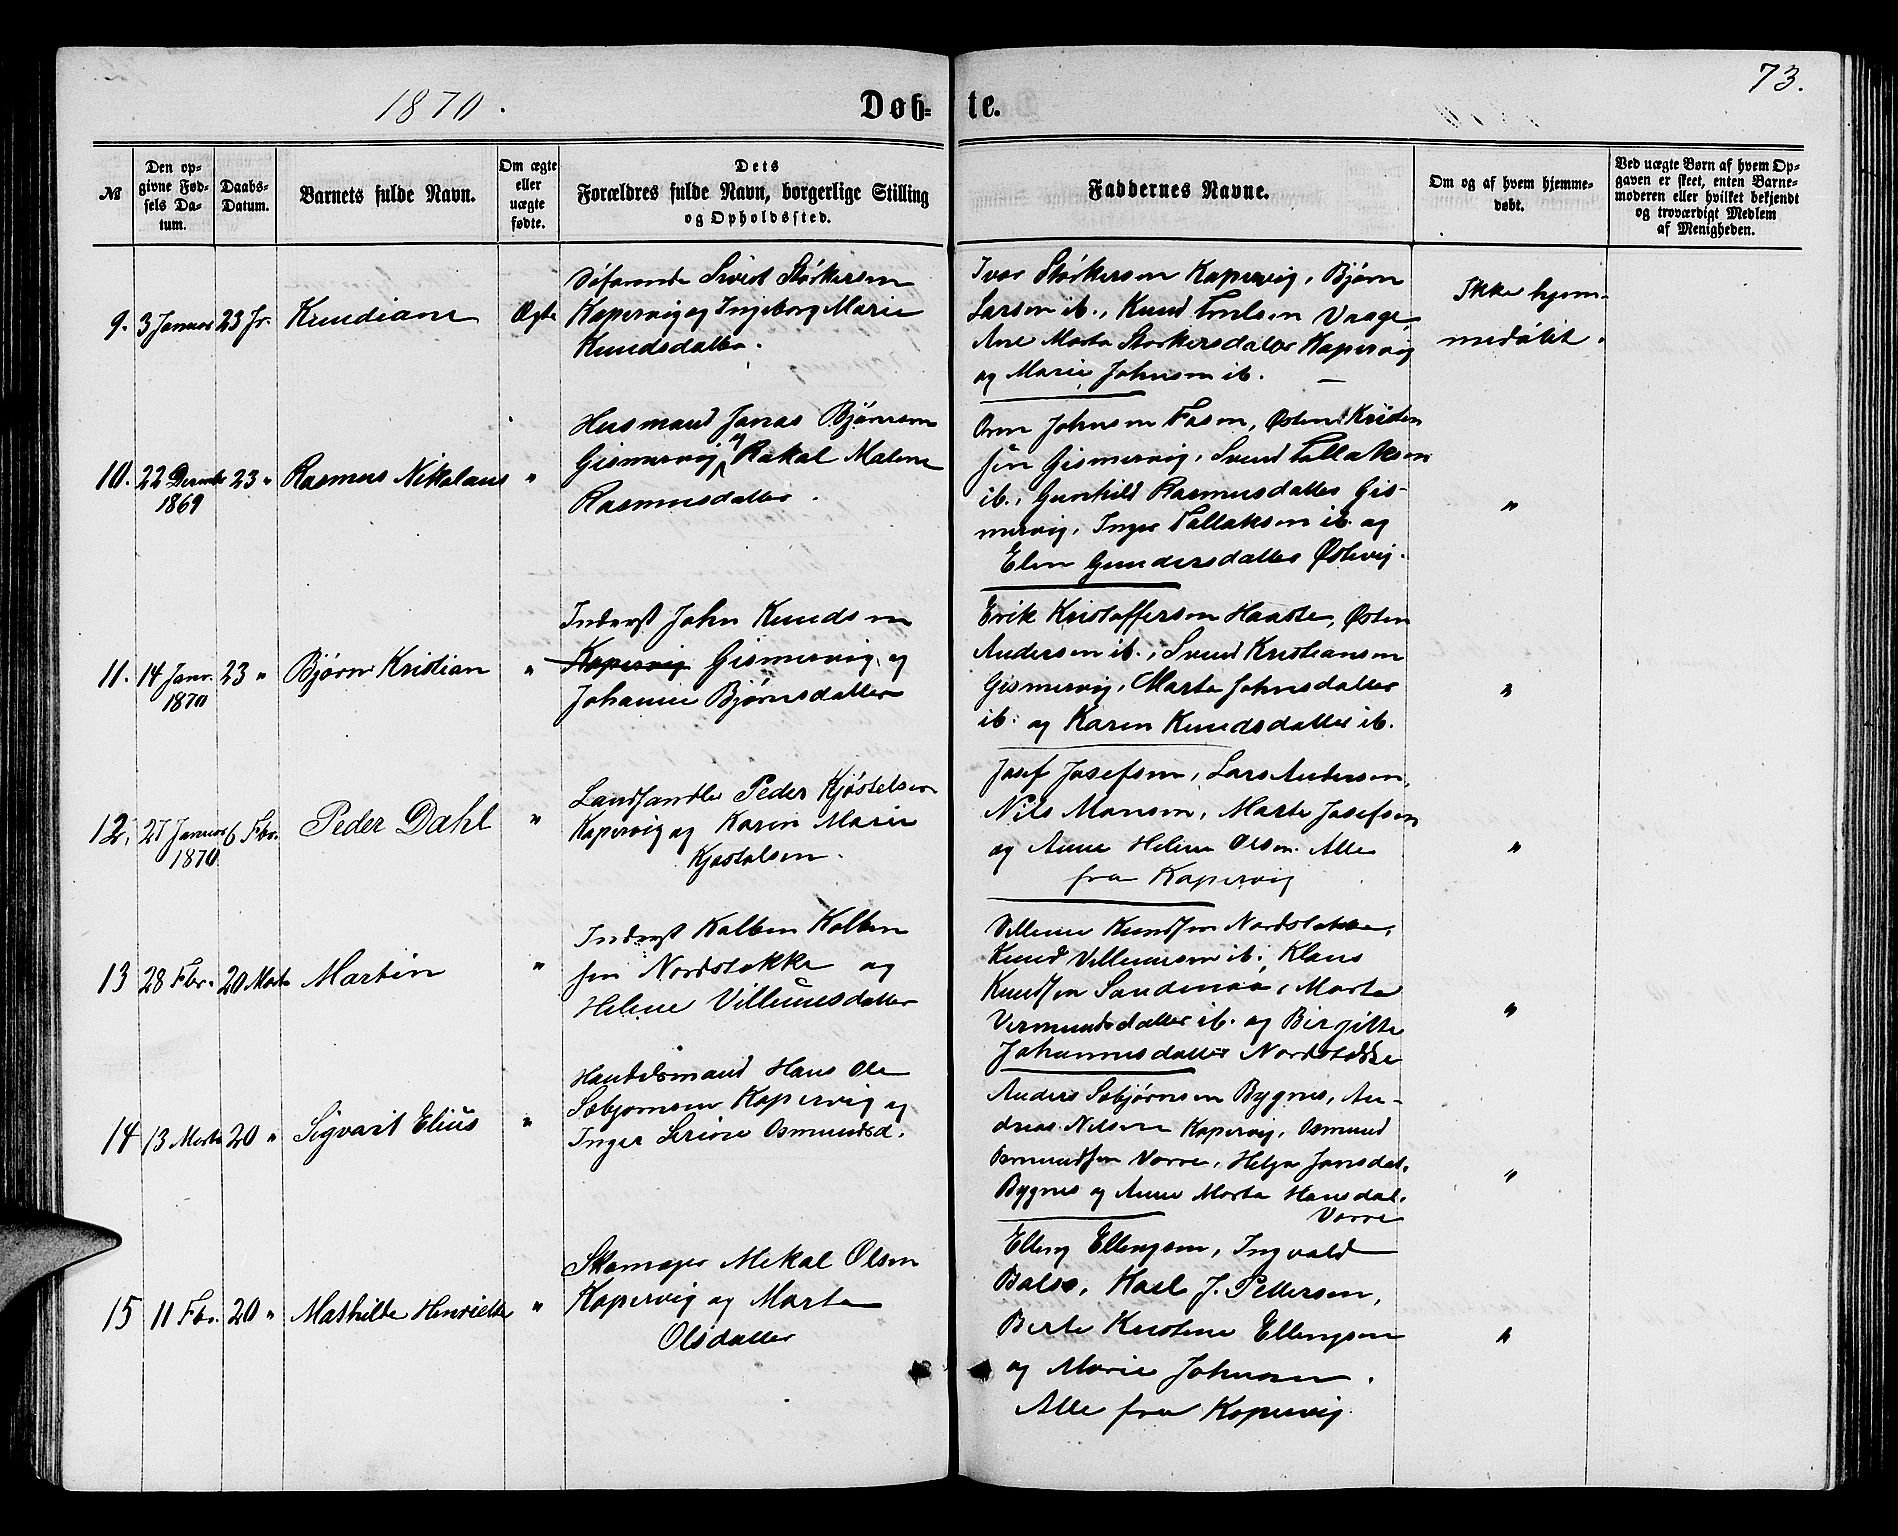 1870.
Døb-
te.
73.
№
Den op-
givne Fød-
sels Da-
tum.
Daabs-
Datum.
Barnets fulde Navn.
Om ægte
eller
uægte
fødte.
Dets
Forældres fulde Navn, borgerlige Stilling
og Opholdssted.
Faddernes Navne.
Om og af hvem hjemme-
døbt.
Ved uægte Børn af hvem Op-
gaven er skeet, enten Barne-
moderen eller hvilket bekjendt
og troværdigt Medlem
af Menigheden.
9. 3 Januar 23 Jr. Knudiane Ægte
Søfarende Sivert Størkersen
Kopervig og Ingeborg Marie
Knudsdatter.
Ivar Størkersen Kopervig, Bjørn
Larsen ib., Knud Vaage,
Ane Marta Storkersdatter Kopervig
og Marie Johnsen ib. —
Ikke hjem-
medøbt.
10. 22 Decembr 23 " Rasmus Nikolaus "
1869
Husmand Jonas Bjørnsen
Gismervig og Rakal Malene
Rasmusdatter.
Johnsen Fosen, Østen Kristen
sen Gismervig, Svend Tollaksen
ib., Gunhild Rasmusdatter Gis-
mervig, Inger Tollaksen ib. og
Elen Gundersdatter Østevig.
"
11. 14 Janr. 23 " Bjørn Kristian "
1870
Inderst John Knudsen
Kopervig Gismervig, og
Johanne Bjørnsdatter
Erik Kristoffersen Haaste, Østen
Andersen ib., Svend Kristiansen
Gismervig, Marta Johnsdatter
ib. og Karen Knudsdatter ib.
"
12. 27 Januar 6 Fbr. Peder Dahl "
1870.
Landhandler Peder Kjøstelsen
Kopervig og Karen Marie
Kjøstelsen.
Josef Josefsen, Lars Andersen,
Nils Monsen, Marte Josefsen
og Anne Helene Olsen. Alle
fra Kopervig
"
13 28 Fbr. 20 Marts Martin "
Inderst Kolben Kolben
sen Nordstokke og
Helene Villumsdatter
Villum Knudsen Nordstokke,
Knud Villumsen ib., Klaus
Knudsen Sandenaa, Marta
Vermundsdatter ib. og Birgitte
Johannesdatter Nordstokke
"
14 13 Marts 20 " Sigvart Elius "
Handelsmand Hans Ole
Sebjørnsen Kopervig og
Inger Serine Osmundsd.
Anders Sebjørnsen Bygnes, An-
dreas Nilsen Kopervig, Osmund
Osmundsen Vorre, Helga Jonsdat.
Bygnes og Anne Marta Hansdat.
Vorre
"
15 11 Fbr. 20 " Mathilde Henriette "
Skomager Mikal Olsen
Kopervig og Marta
Olsdatter
Elling Ellingsen, Ingvald
J. Pettersen,
Berte Kristene Ellingsen
og Marie Johnsen.
Alle fra Kopervig
"